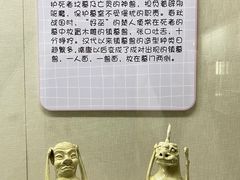 护死者坟墓及亡灵的神兽，担负着辟凶
驱魔，保护墓室不受侵扰的职责。春秋
战国时，“好巫”的楚人通常在死者的
墓中放置木雕的镇墓兽，张口吐舌，十
分狰狞。汉代以来镇墓兽的造型种类日
趋繁多，南唐以后变成了成对出现的镇墓
兽，一人面，一兽面，放在墓门两侧。